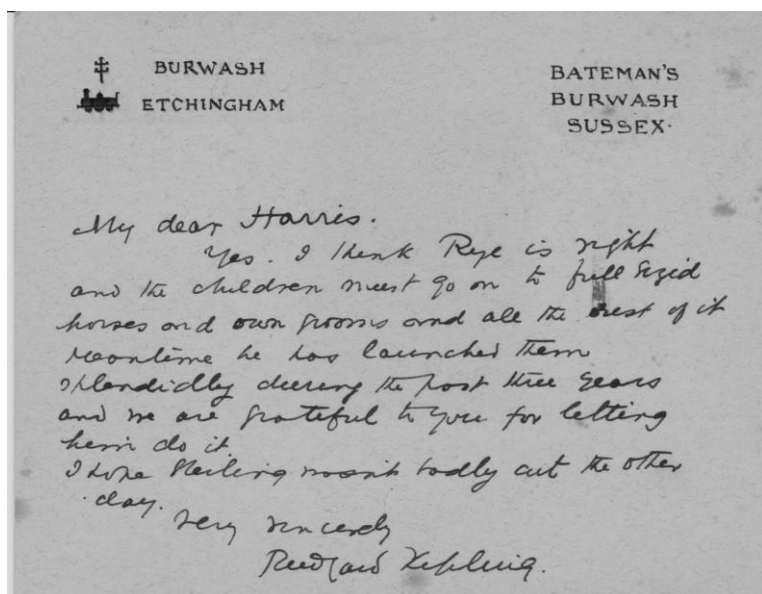 BURWASH
ETCHINGHAM
BATEMAN'S
BURWASH
SUSSEX.
My dear Harris.
Yes. I think Rye is right
and the children must go on to full sized
horses and own grooms and all the rest of it
meantime he has launched them
splendidly during the past three years
and we are grateful to you for letting
him do it
I hope wasn't badly cut the other
day.
Very sincerely
Rudyard Kipling.